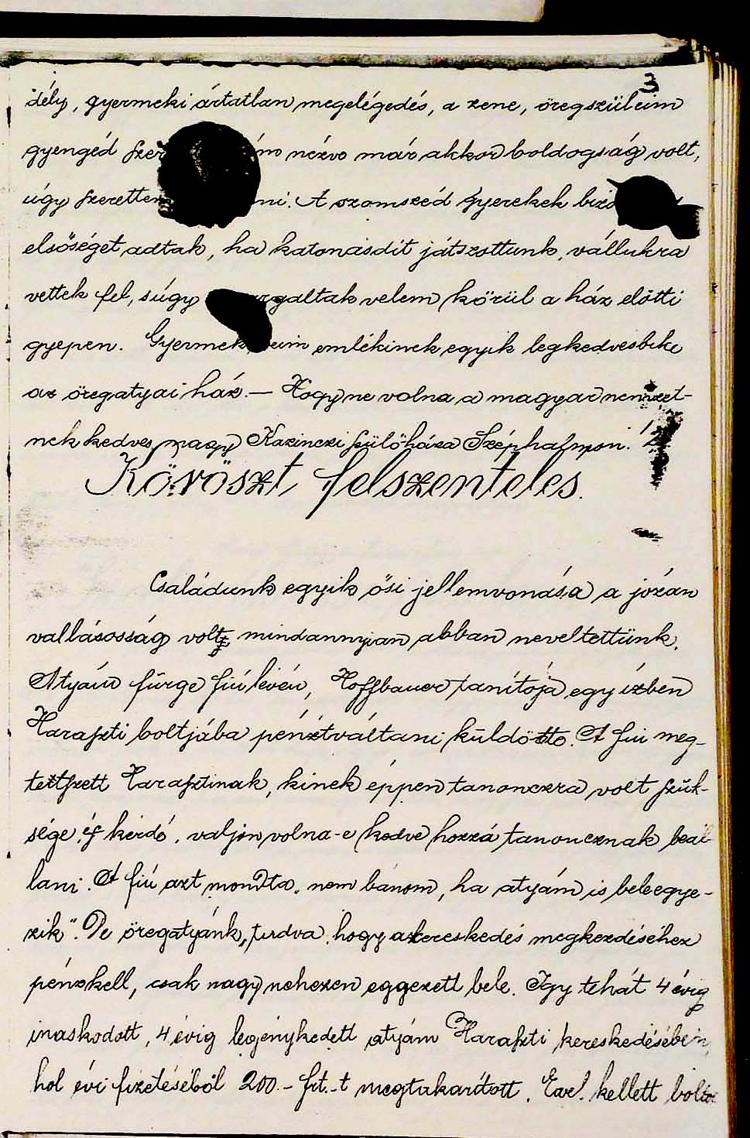 3
idély, gyermeki ártatlan megelégedés, a zene, öregszüleim
gyengéd nézve már akkor boldogság volt,
úgy A szomszéd gyerekek
elsőséget adtak, ha katonásdit játszottunk, vállukra
vettek fel, s úgy velem körül a ház előtti
gyepen. emlékinek egyik legkedvesbike
az öregatyai ház. — Hogy ne volna a magyar nemzet-
nek kedves nagy Kazinczi szülőháza Széphalmon.
Köröszt felszenteles.
Családunk egyik ősi jellemvonása a józan
vallásosság volt, mindannyian abban neveltettünk.
Atyám fürge fiú lévén, Hoffbauer tanítója egy ízben
Haraszti boltjába pénztváltani küldötte. A fiú meg-
tettszett Harasztinak, kinek éppen tanonczra volt szük-
sége, és kérdé, valjon volna-e kedve hozzá tanoncznak beál-
lani. A fiú azt mondta, nem bánom, ha atyám is beleegye-
zik". De öregatyánk, tudva, hogy a kereskedés megkezdéséhez
pénz kell, csak nagy nehezen eggezett bele. Igy tehát 4 évig
inaskodott, 4 évig legénykedett atyám Haraszti kereskedésében,
hol évi fizetéséből 200.- frt.-t megtakarított. Evvel kellett